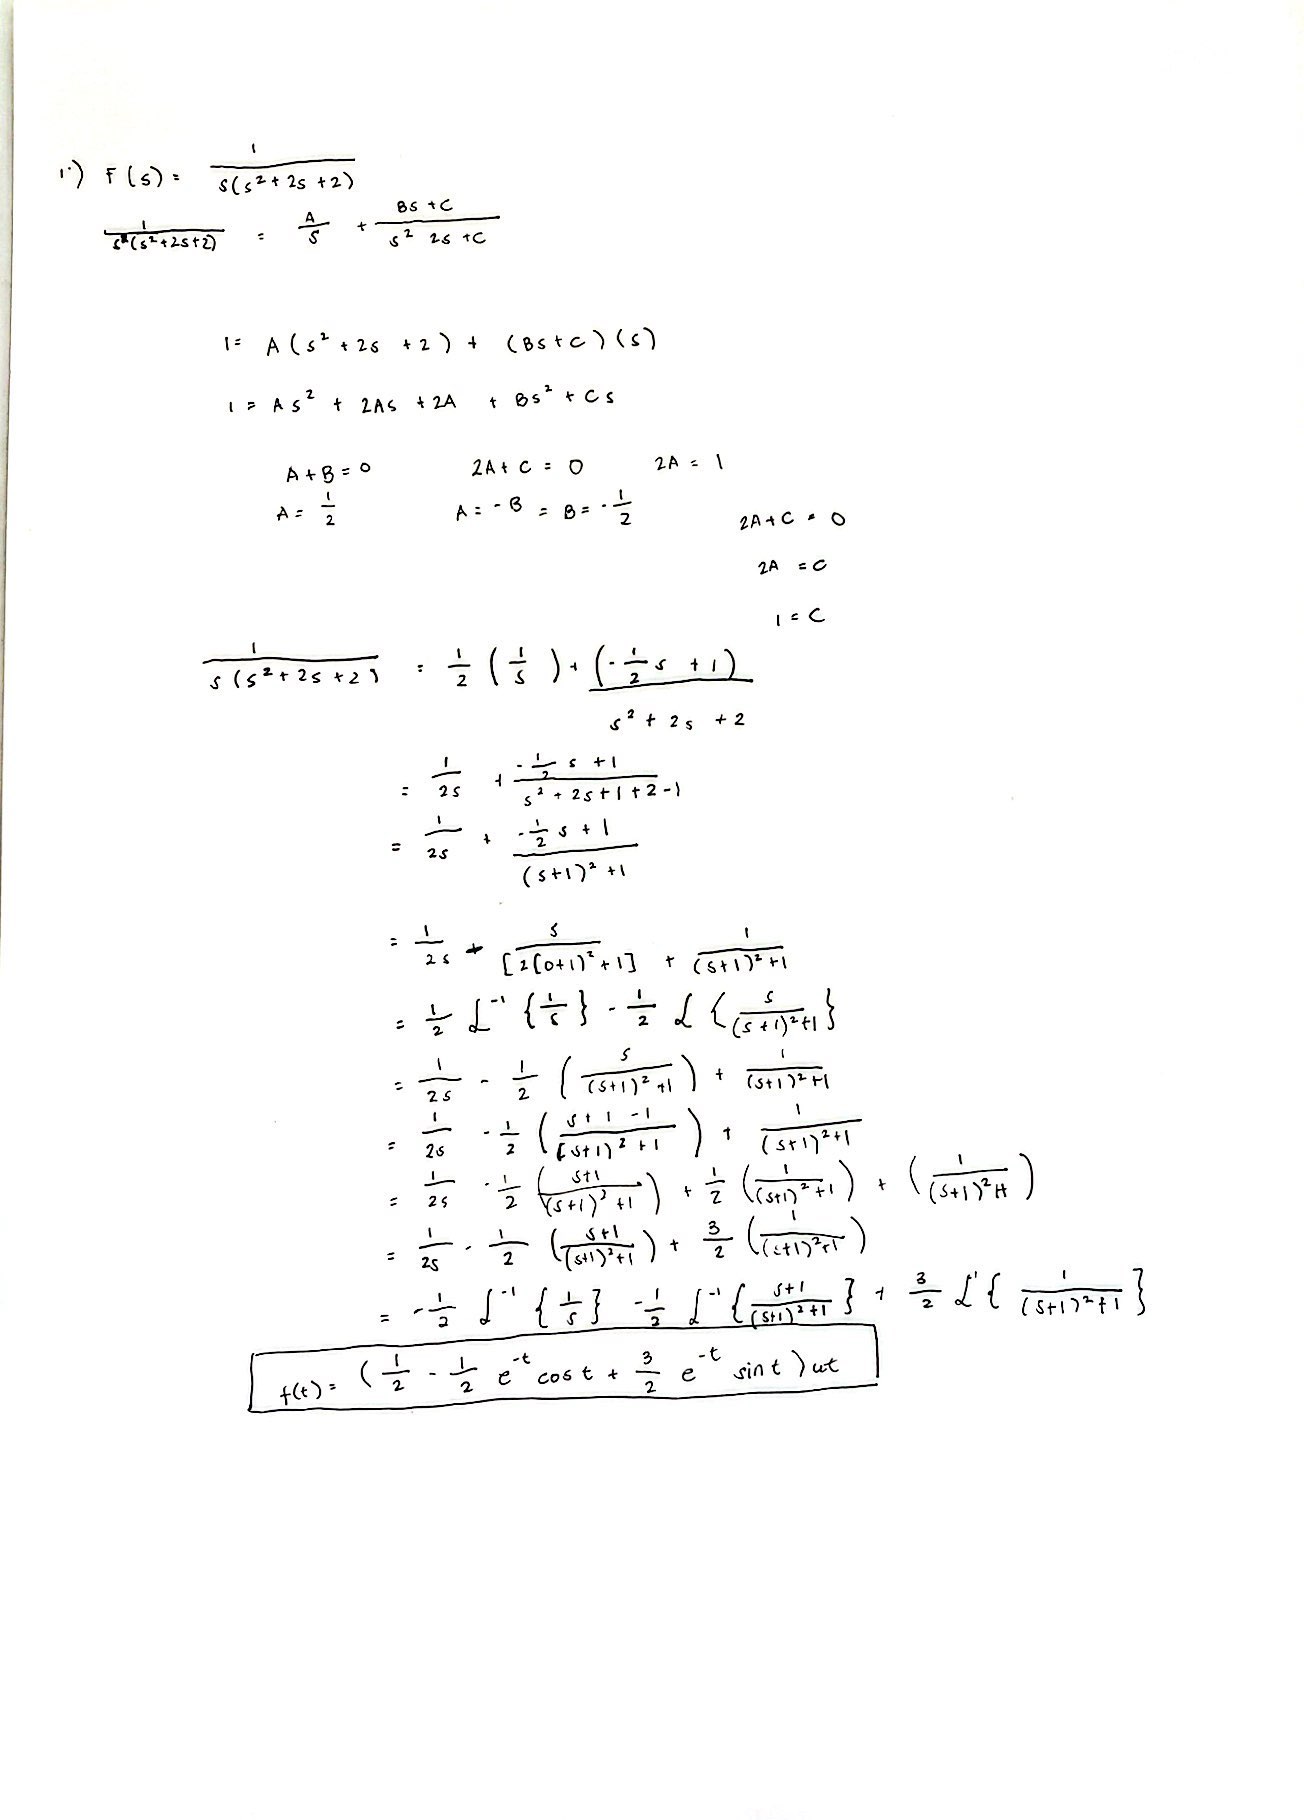 1.) F(s) = 1/(s(s² + 2s + 2))
1/(s(s² + 2s + 2)) = A/s + (Bs + C)/(s² 2s + C)
1 = A(s² + 2s + 2) + (Bs + C)(s)
1 = As² + 2As + 2A + Bs² + Cs
A + B = 0 2A + C = 0 2A = 1
A = 1/2 A = -B = B = -1/2
2A + C = 0
2A = C
1 = C
1/(s(s² + 2s + 2)) = 1/2 (1/s) + (-1/2 s + 1)/(s² + 2s + 2)
= 1/2s + (-1/2 s + 1)/(s² + 2s + 1 + 2 - 1)
= 1/2s + (-1/2 s + 1)/((s+1)² + 1)
= 1/2s + s/[2(0+1)² + 1] + 1/((s+1)² + 1)
= 1/2 L⁻¹ {1/s} - 1/2 L {s/((s+1)² + 1)}
= 1/2s - 1/2 (s/((s+1)² + 1)) + 1/((s+1)² + 1)
= 1/2s - 1/2 ((s + 1 - 1)/((s+1)² + 1)) + 1/((s+1)² + 1)
= 1/2s - 1/2 ((s+1)/((s+1)² + 1)) + 1/2 (1/((s+1)² + 1)) + (1/((s+1)² + 1))
= 1/2s - 1/2 ((s+1)/((s+1)² + 1)) + 3/2 (1/((s+1)² + 1))
= -1/2 L⁻¹ {1/s} - 1/2 L⁻¹ {(s+1)/((s+1)² + 1)} + 3/2 L¹ {1/((s+1)² + 1)}
f(t) = (1/2 - 1/2 e^-t cos t + 3/2 e^-t sin t) ut